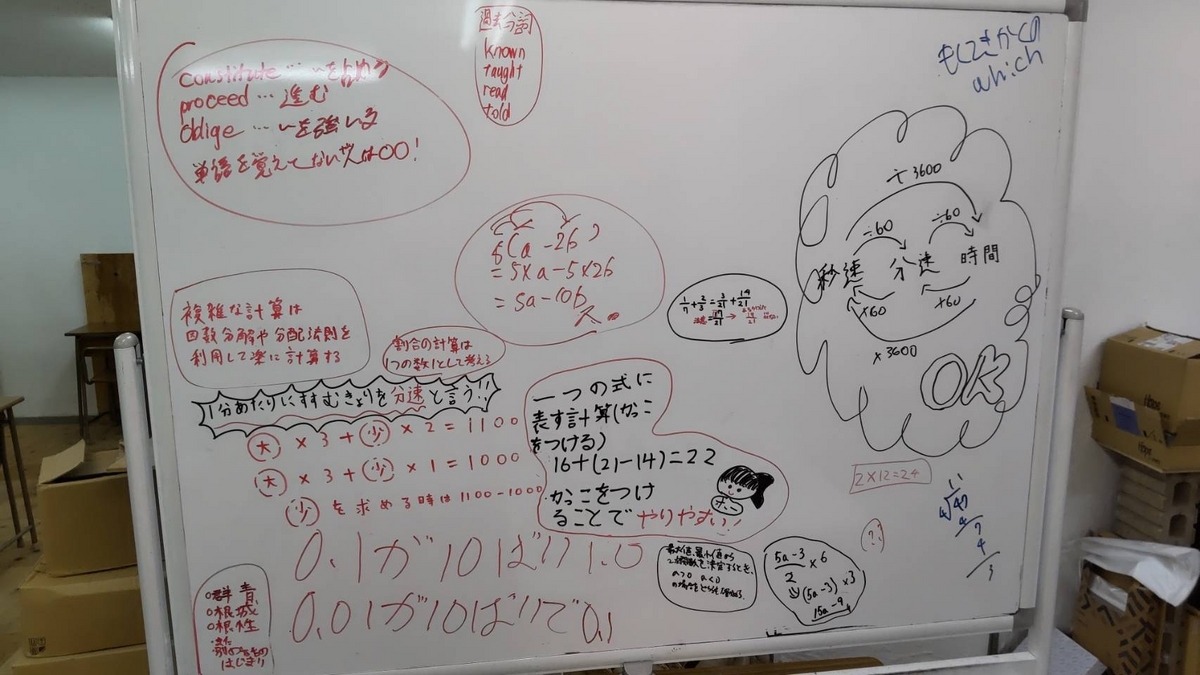 constitute … を占める
proceed … 進む
oblige … を強いる
単語を覚えてない人は〇〇!
過去分詞
known
taught
read
told
which
5(a-2b)
=5×a-5×2b
=5a-10b
÷3600
÷60 ÷60
秒速 分速 時間
×60 ×60
×3600
OK
複雑な計算は
因数分解や分配法則を
利用して楽に計算する
割合の計算は
1つの数1として考える
1/7+2/3=3/21+14/21
1分あたりにすすむきょりを分速と言う!!
大×3+少×2=1100
大×3+少×1=1000
少を求める時は1100-1000
一つの式に
表す計算(かっこ
をつける)
16+(21-14)=22
かっこをつけ
ることでやりやすい!
2×12=24
11
4√47
4
7
4
3
0.1が10こ 1.0
0.01が10こ 0.1
群青
根城
根性
はじまり
a>0 a<0
(5a-3)/2 ×6
⇓(5a-3)×3
15a-9